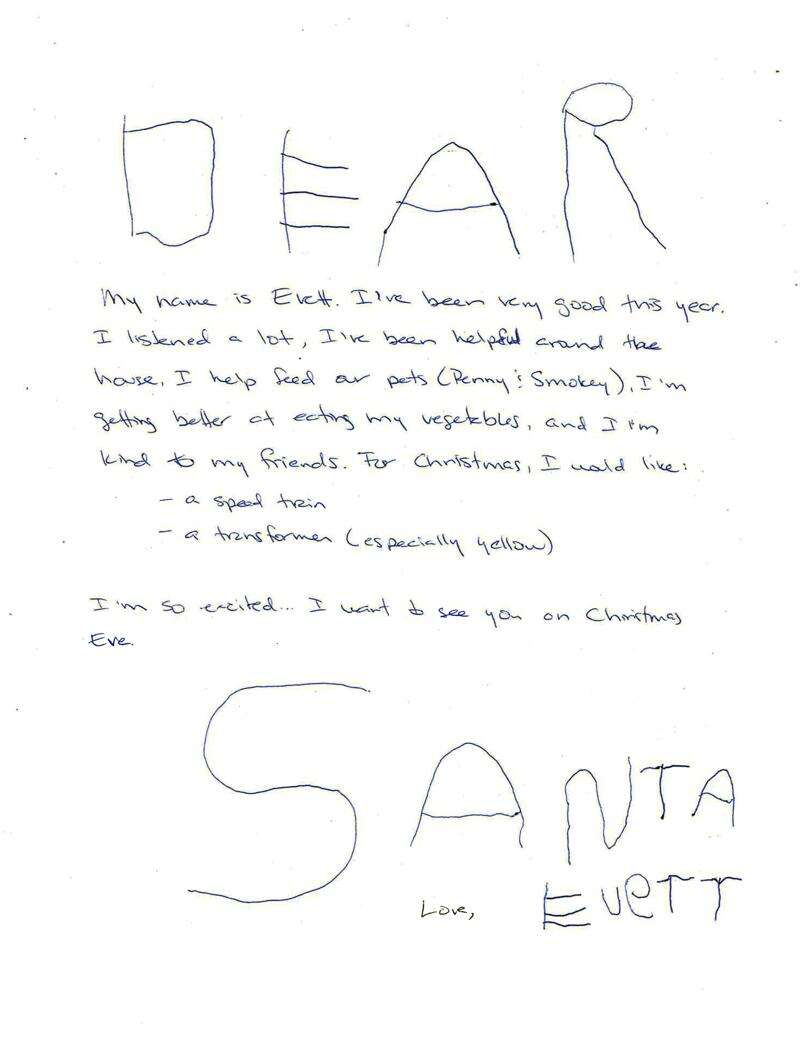 DEAR
My name is Evett. I've been very good this year.
I listened a lot, I've been helpful around the
house, I help feed our pets (Penny & Smokey), I'm
getting better at eating my vegetables, and I'm
kind to my friends. For Christmas, I would like:
- a speed train
- a transformer (especially yellow)
I'm so excited... I want to see you on Christmas
Eve.
SANTA
Love, EVeTT